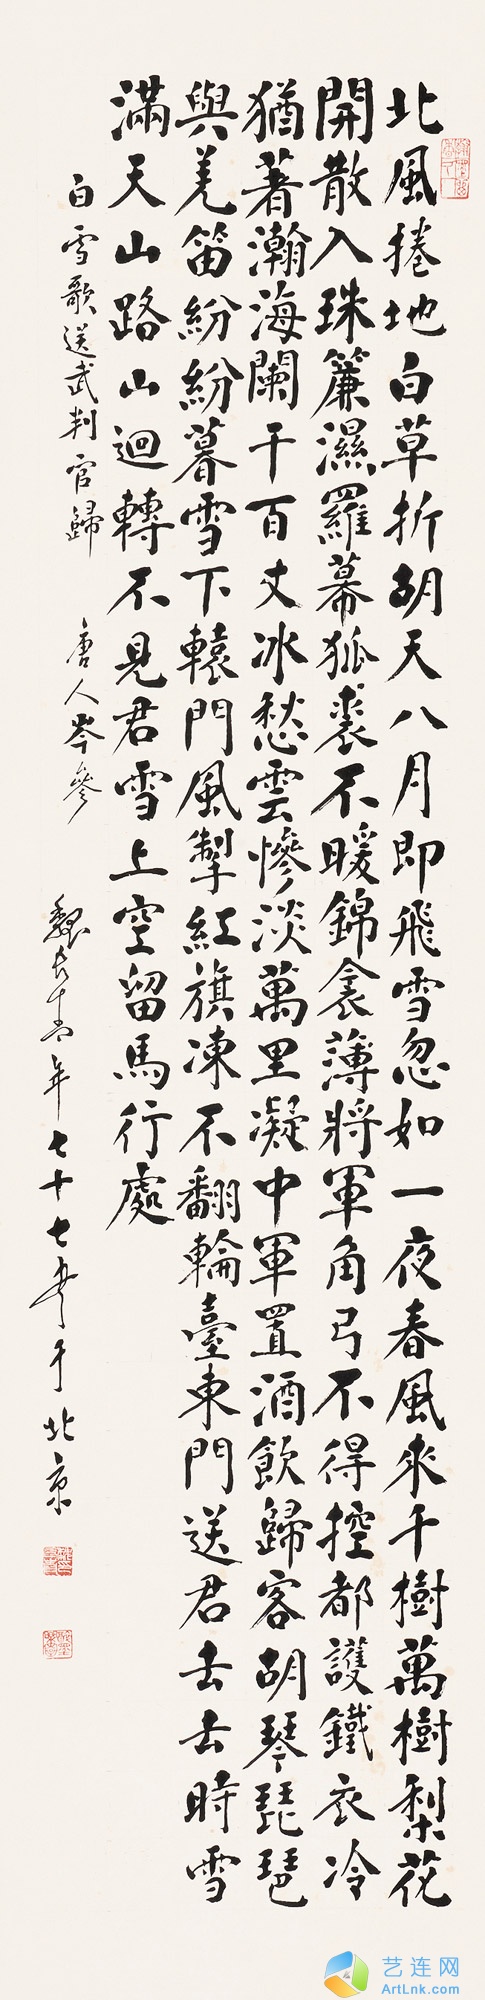 北風捲地白草折胡天八月即飛雪忽如一夜春風來千樹萬樹梨花
開散入珠簾濕羅幕狐裘不暖錦衾薄將軍角弓不得控都護鐵衣冷
猶著瀚海闌干百丈冰愁雲慘淡萬里凝中軍置酒飲歸客胡琴琵琶
與羌笛紛紛暮雪下轅門風掣紅旗凍不翻輪臺東門送君去去時雪
滿天山路山迴轉不見君雪上空留馬行處
白雪歌送武判官歸 唐人岑參 魏長青年七十七于北京
艺连网
ArtLnk.com